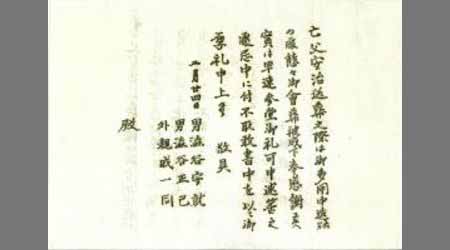 亡父守治送葬之際は御多用中遠路
の處態々御會葬被下奉感謝候
實は早速参堂御礼可申述筈之
處忌中に付不取敢書中を以て御
尊礼申上候 敬具
二月廿四日 男澁谷守就
男澁谷正己
外親戚一同
殿